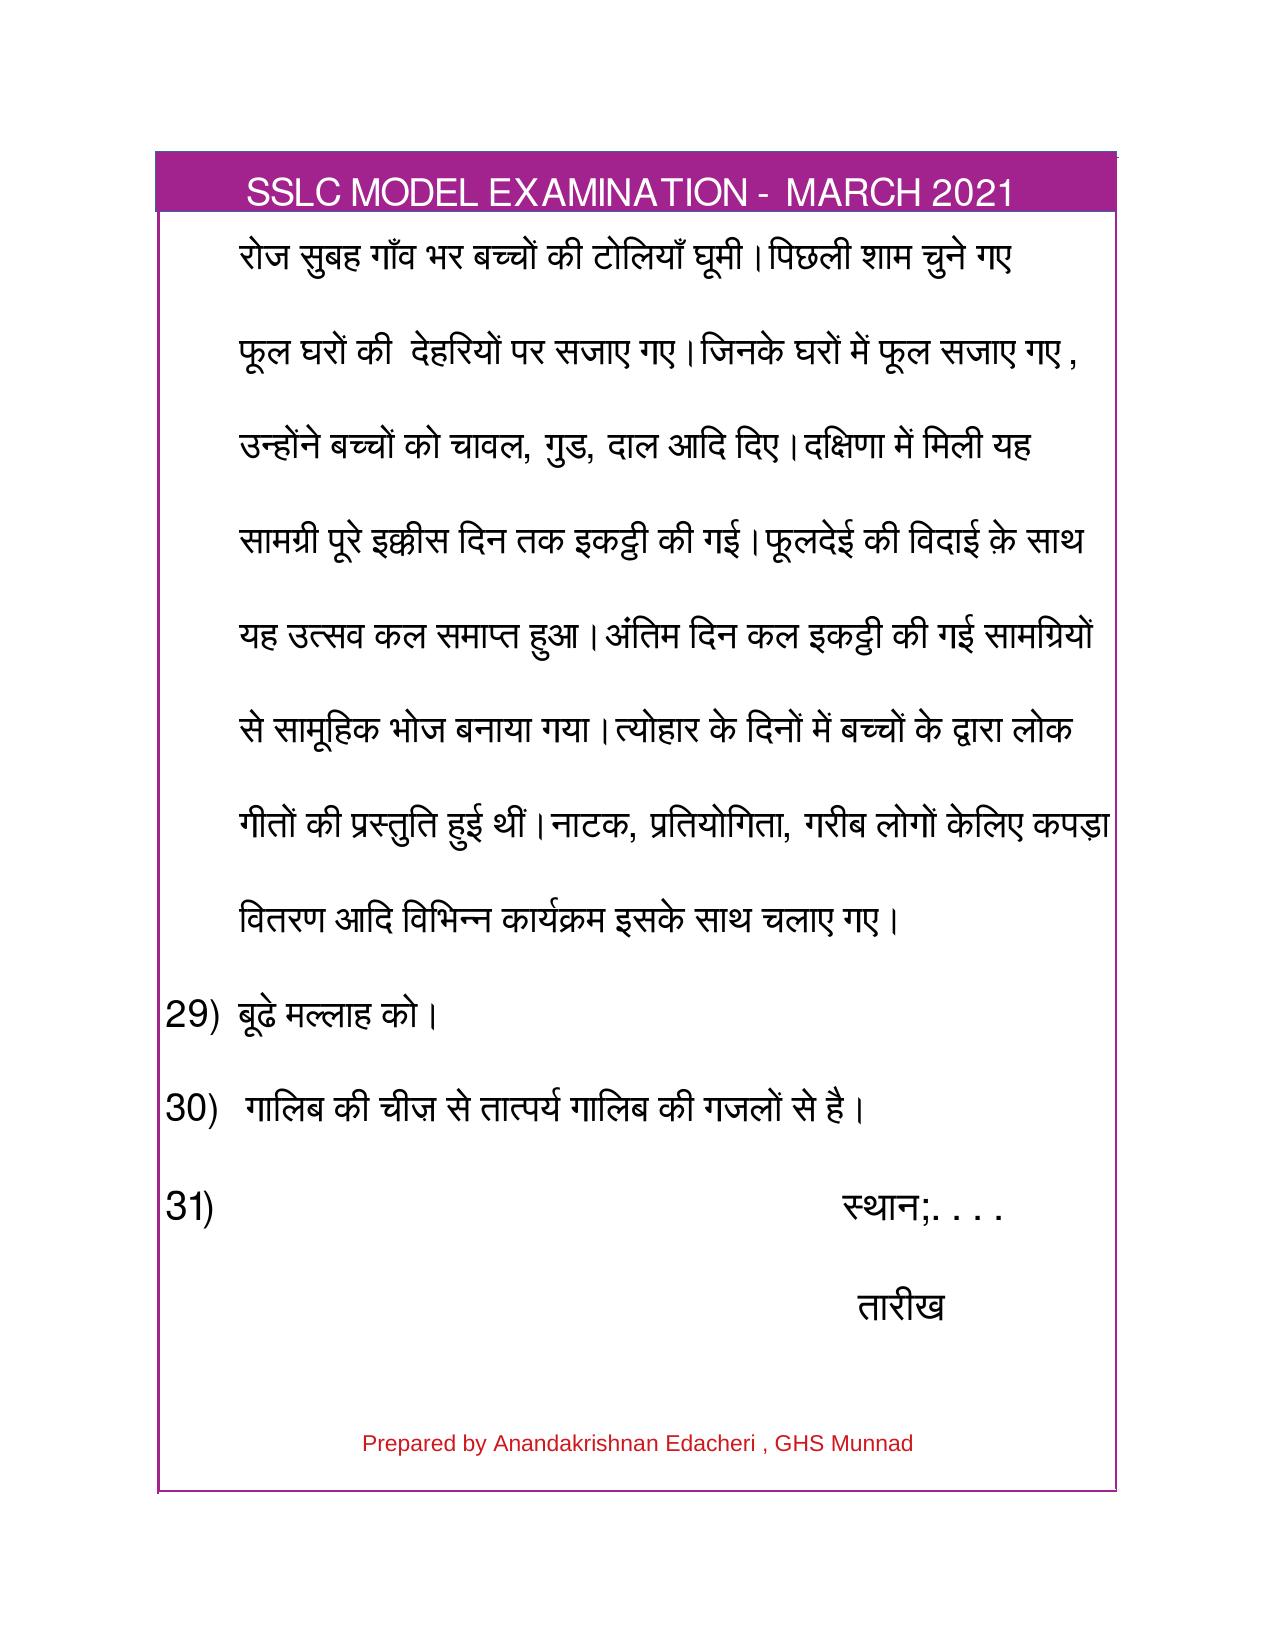 SSLC MODEL EXAMINATION - MARCH 2021
रोज सुबह गाँव भर बच्चों की टोलियाँ घूमी।पिछली शाम चुने गए
फूल घरों की देहरियों पर सजाए गए।जिनके घरों में फूल सजाए गए ,
उन्होंने बच्चों को चावल, गुड, दाल आदि दिए।दक्षिणा में मिली यह
सामग्री पूरे इक्कीस दिन तक इकट्ठी की गई।फूलदेई की विदाई क़े साथ
यह उत्सव कल समाप्त हुआ।अंतिम दिन कल इकट्ठी की गई सामग्रियों
से सामूहिक भोज बनाया गया।त्योहार के दिनों में बच्चों के द्वारा लोक
गीतों की प्रस्तुति हुई थीं।नाटक, प्रतियोगिता, गरीब लोगों केलिए कपड़ा
वितरण आदि विभिन्न कार्यक्रम इसके साथ चलाए गए।
29) बूढे मल्लाह को।
30) गालिब की चीज़ से तात्पर्य गालिब की गजलों से है।
31) स्थान;. . . .
तारीख
Prepared by Anandakrishnan Edacheri , GHS Munnad